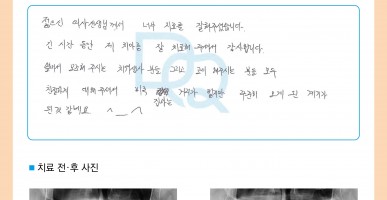 젊으신 의사선생님께서 너무 진료를 잘해주셨습니다.
긴 시간 동안 제 치아를 잘 치료해 주셔서 감사합니다.
옆에서 도와주시는 치위생사 분들 그리고 교대해주시는 분들 모두
친절하게 대해주셔서 비록 집과는 거리가 멀지만 꾸준히 오게 된 계기가
된것 같네요 ^__^
DRQ
■ 치료 전·후 사진